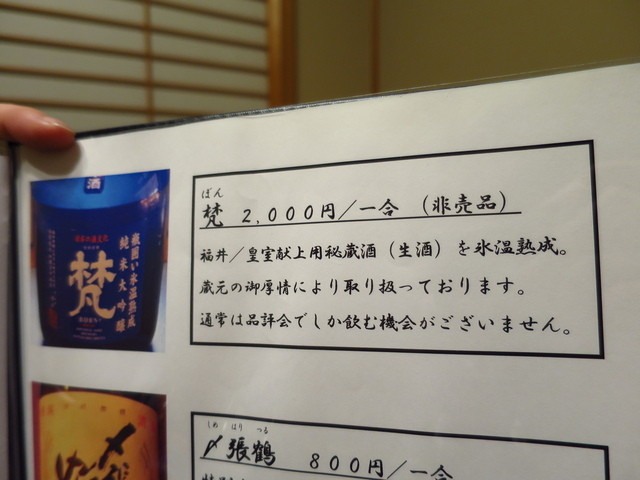 ぼん
梵 2,000円／一合 (非売品)
福井／皇室献上用秘蔵酒（生酒）を氷温熟成。
蔵元の御厚情により取り扱っております。
通常は品評会でしか飲む機会がございません。
酒
梵
瓶囲い氷温熟成
純米大吟醸
しめ はり つる
〆張鶴 800円／一合
〆